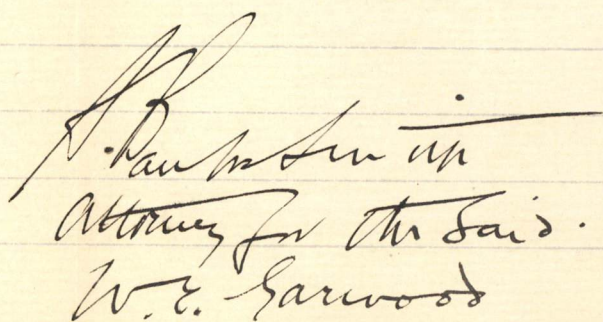 Attorney for the Said.
W. E. Garwood